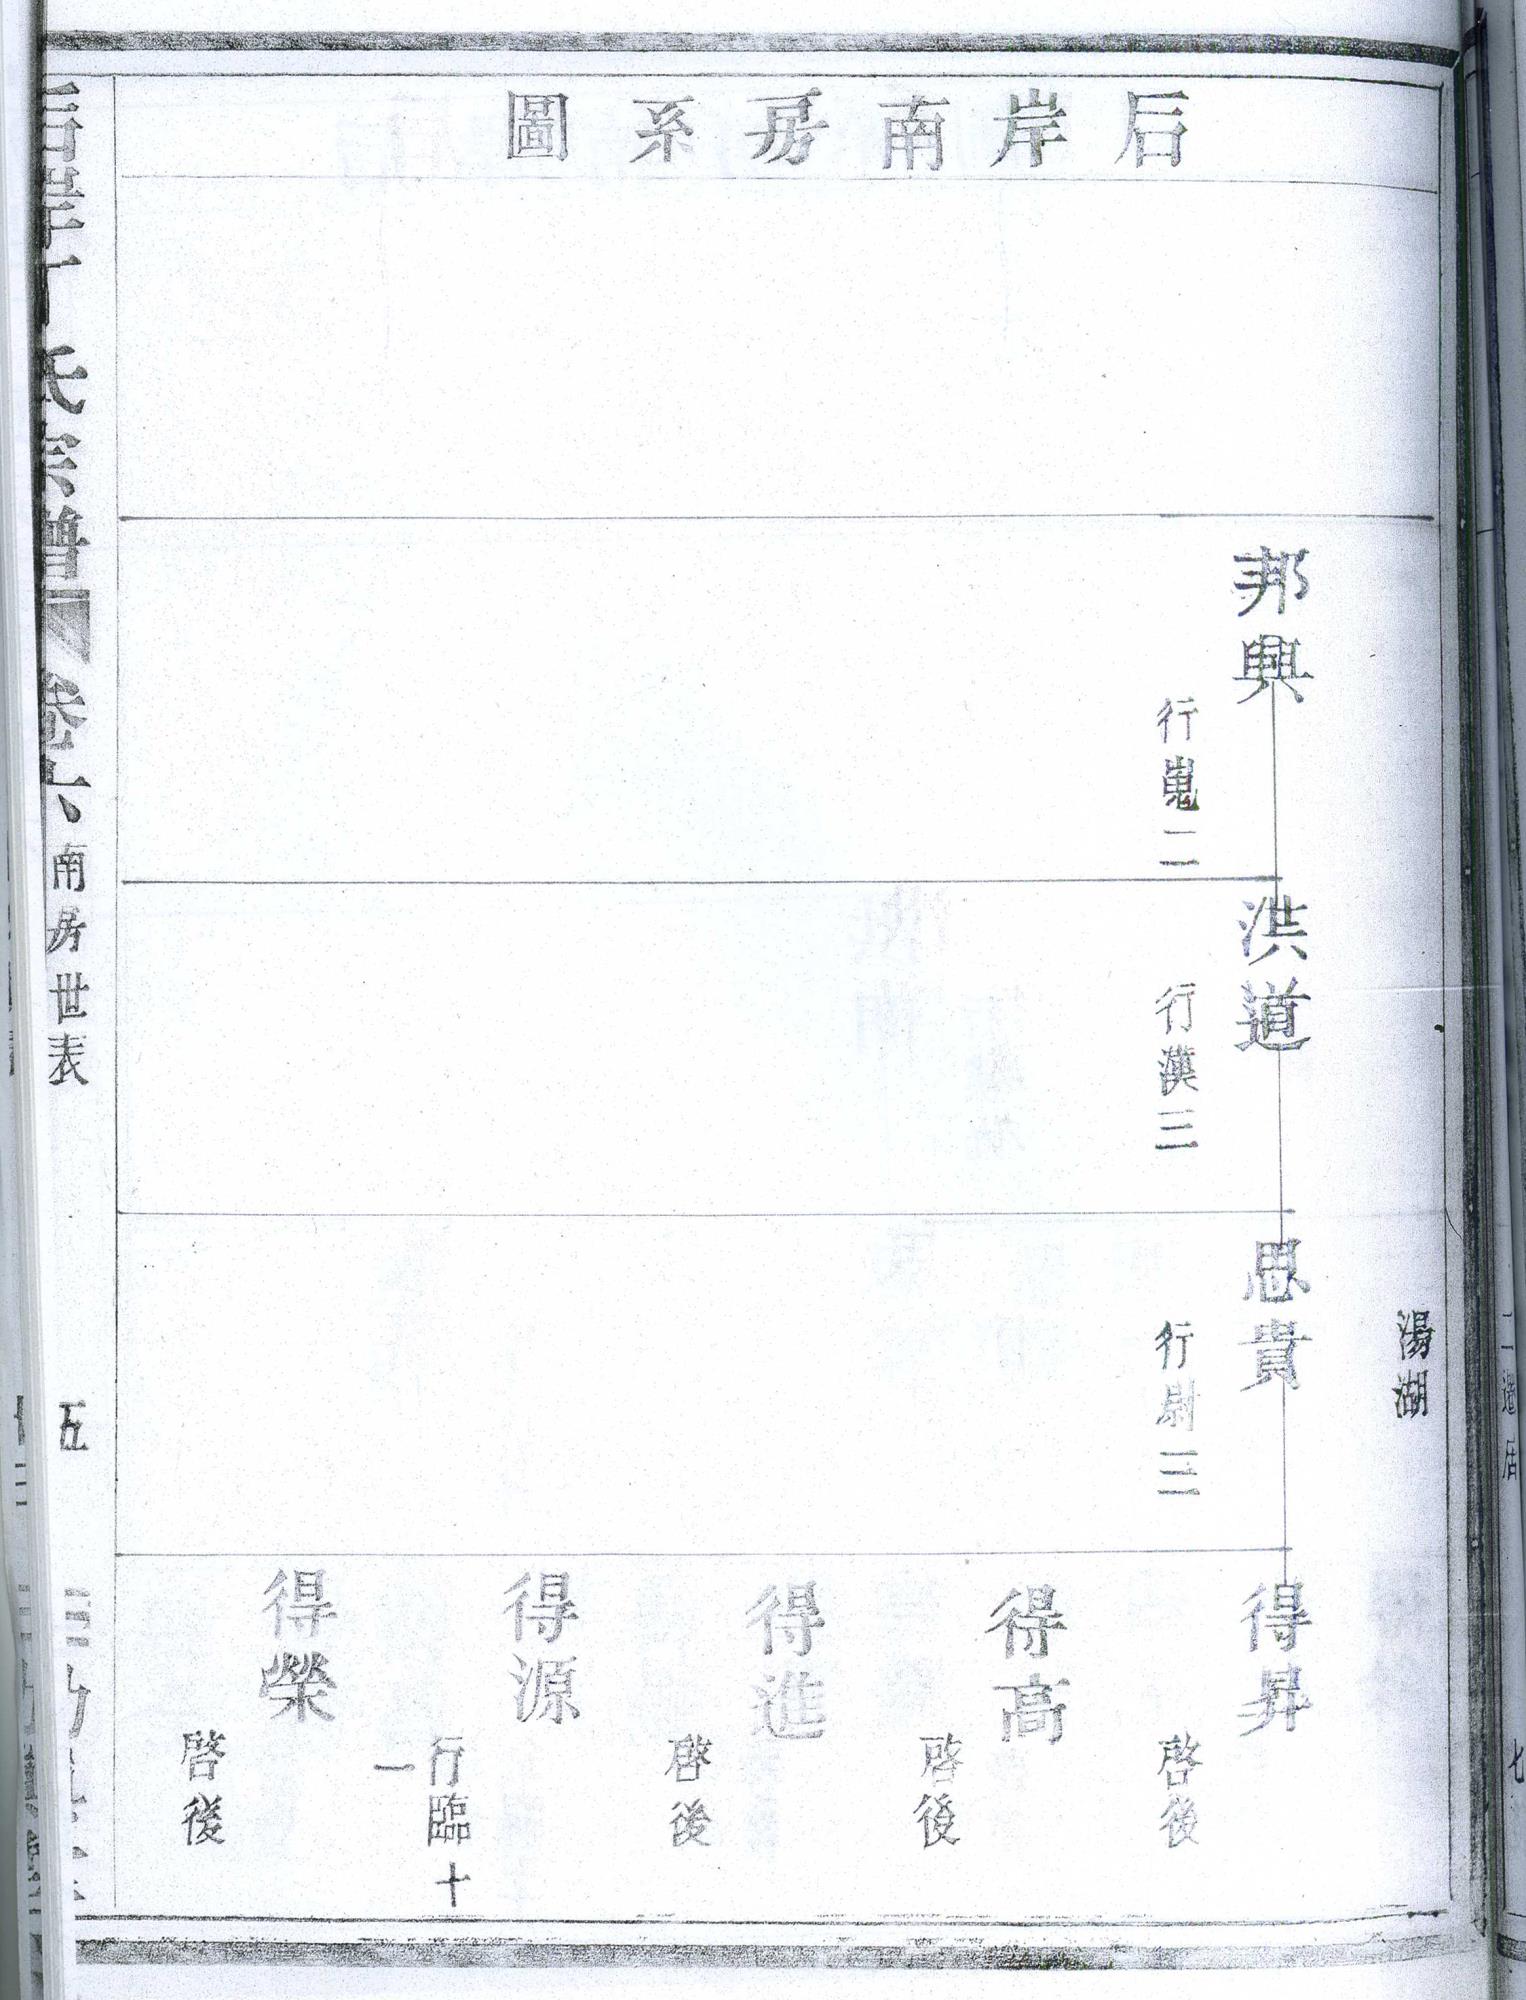 后岸南房系圖
湯湖
邦興
行嵬二
洪道
行漢三
思貴
行尉三
得昇
啓後
得高
啓後
得進
啓後
得源
行臨十
一
得榮
啓後
氏宗譜 卷六 南房世表 五